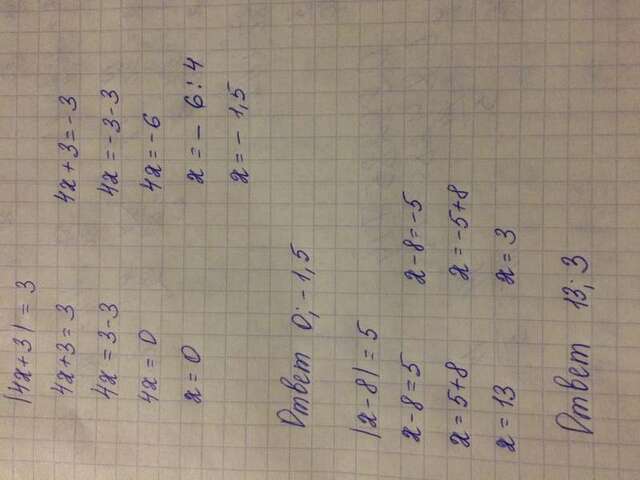 |4x+3| = 3
4x+3 = 3 4x+3 = -3
4x = 3-3 4x = -3-3
4x = 0 4x = -6
x = 0 x = - 6:4
x = - 1,5
Ответ 0; -1,5
|x-8| = 5
x-8 = 5 x-8 = -5
x = 5+8 x = -5+8
x = 13 x = 3
Ответ 13; 3